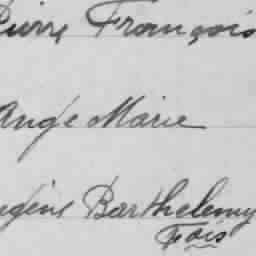 Pierre François
Ange Marie
Eugène Barthelemy
Fois